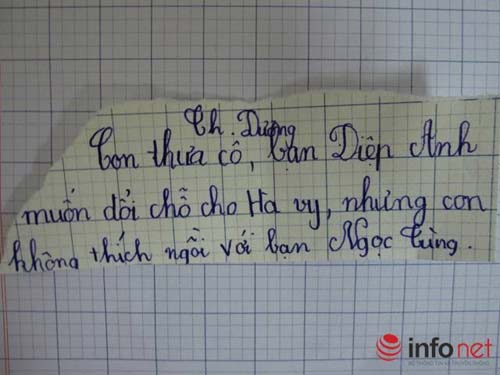 Th. Dương
Con thưa cô, bạn Diệp Anh
muốn dổi chỗ cho Hà vy, nhưng con
không thích ngồi với bạn Ngọc Tùng.
infonet